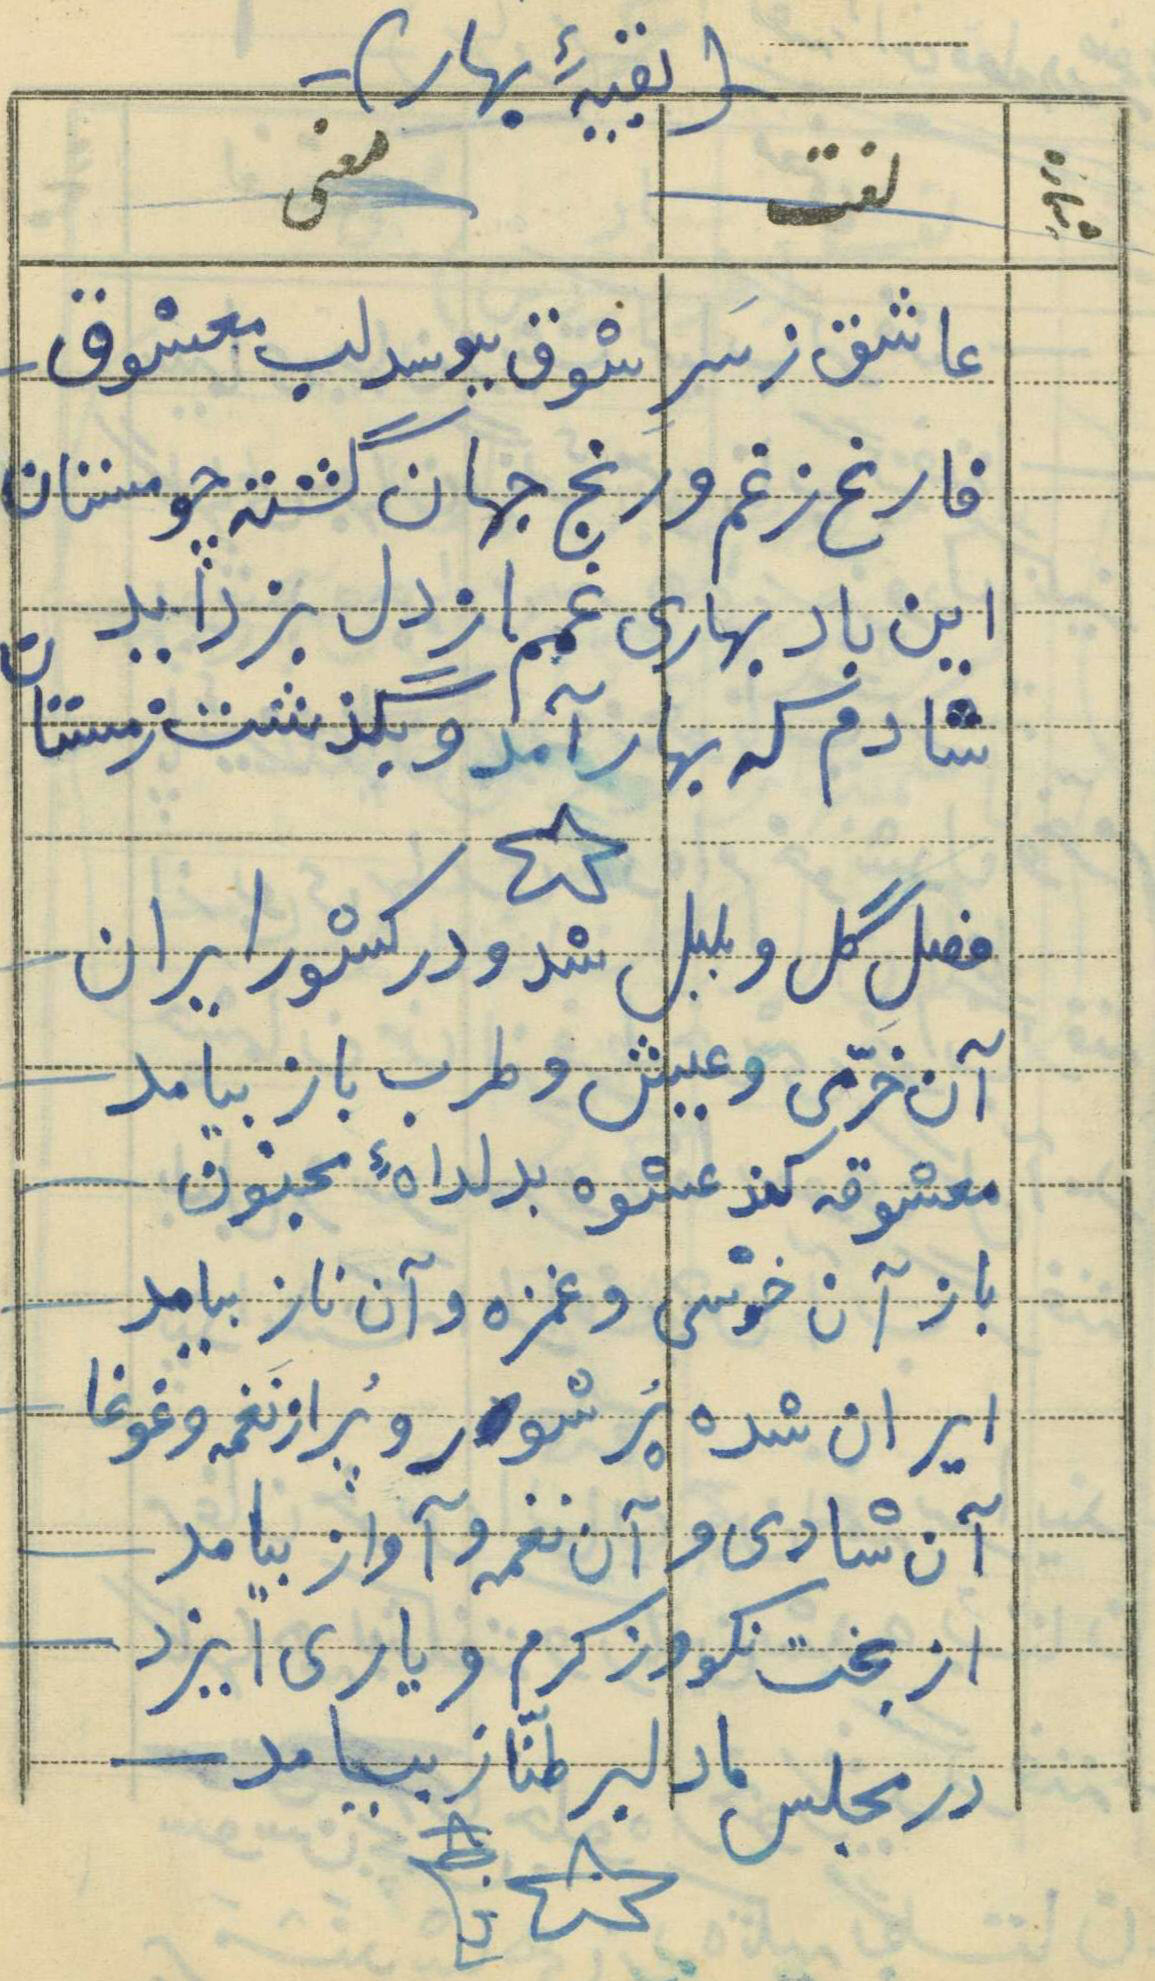 (بقیهٔ بهار)-
شماره لغت معنی
عاشق ز سَرِ شوق ببوسد لب معشوق
فارغ ز غم و رنج جهان گشته چو مستان
این باد بهاری غم از دل بزداید
شادم که بهار آمد و بگذشت زمستان
فصلِ گل و بلبل شد و در کشور ایران
آن خرّمی و عیش و طرب باز بیامد
معشوقه کند عشوه بدلداهٔ مجنون
باز آن خوشی و غمزه و آن ناز بیامد
ایران شده پُر شور و پُر از نَغمه و غوغا
آن شادی و آن نغمه و آواز بیامد
از بخت نکو وز کرم و یاری ایزد
در مجلس ما دلبر طنّاز بیامد